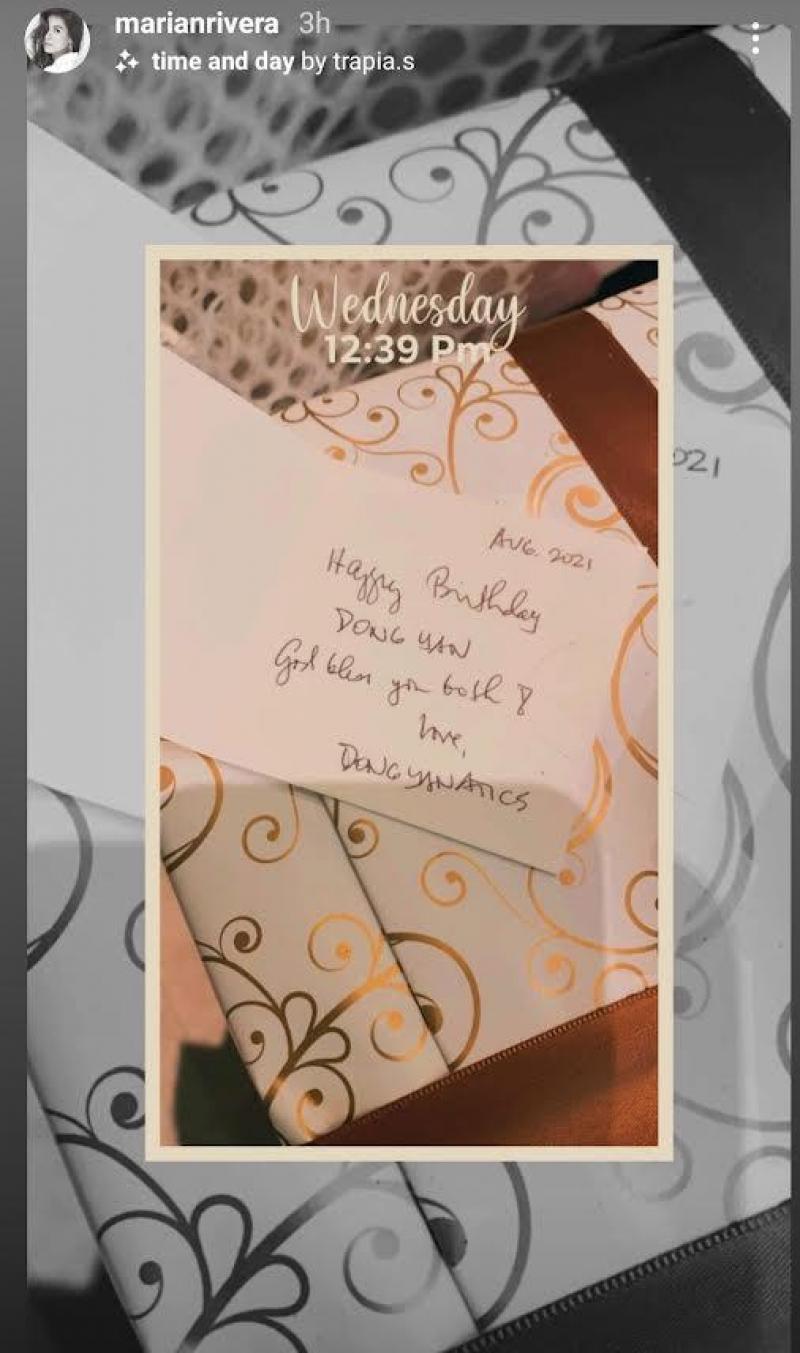 marianrivera 3h
time and day by trapia.s
Wednesday
12:39 Pm
021
AUG. 2021
Happy Birthday
DONG YAN
God bless you both
Love,
DONGYANATICS